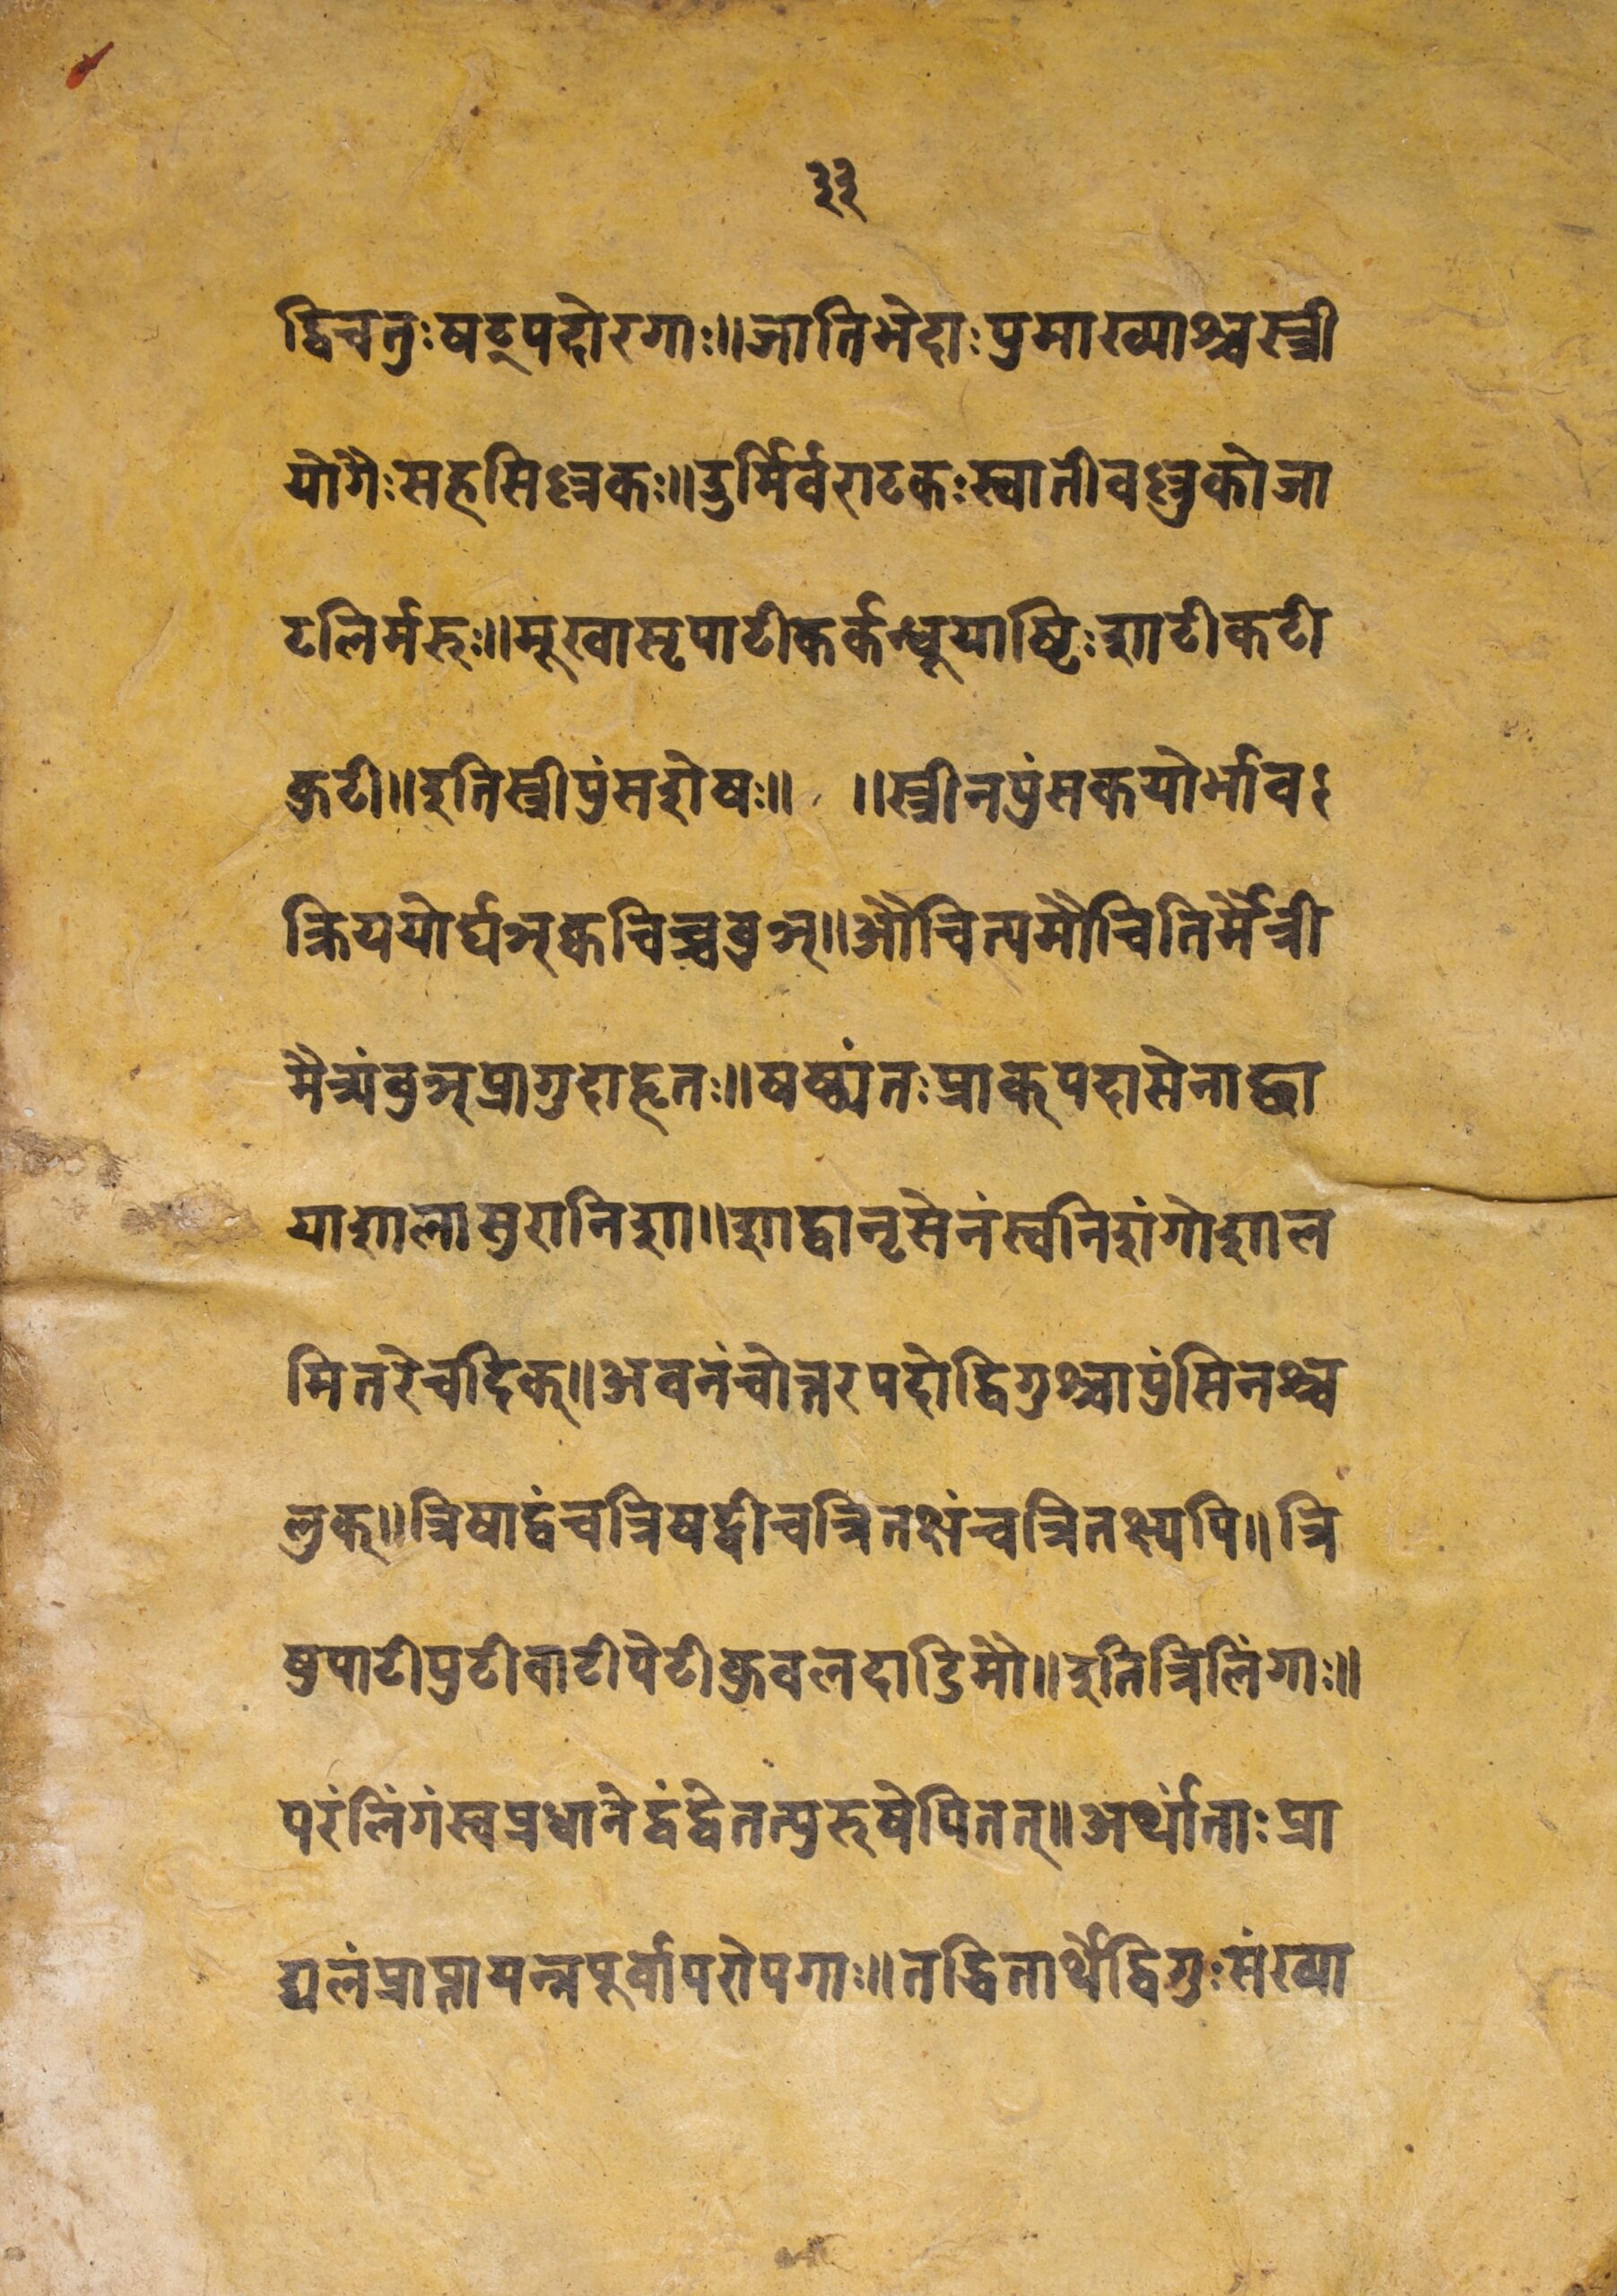 ३३
द्विचतुःषट्पदोरगाः॥जातिभेदाःपुमाख्याश्चस्त्री
योगैःसहसिध्रकः॥दुर्मिर्वराटकःस्वातीवध्रुकोजा
टलिर्मरुः॥मूखासृपाटीकर्कन्धूयाष्टिःशाटीकटी
कुटी॥इतिस्त्रीपुंसशेषः॥ ॥स्त्रीनपुंसकयोर्भाव
क्रिययोर्घञ्क्वचिच्चवुञ्॥औचित्यमौचितिर्मैत्री
मैत्र्यंवुञ्प्रागुदाहृतः॥षष्ठ्यंतःप्राक्पदासेनाछा
याशालासुरानिशा॥शाद्वानृसेनंस्वनिशंगोशाल
मितरेचदिक्॥अवनंचोत्तरपदोद्विगुश्चापुंसिनश्च
लुक्॥त्रिषाद्वंचत्रिषद्वीचत्रितक्षंचत्रितक्ष्यपि॥त्रि
षुपाटीपुटीवाटीपेटीकुवलदाडिमौ॥इतित्रिलिंगाः॥
परंलिंगंस्वप्रधानेद्वंद्वेतत्पुरुषेपितत्॥अर्थांताःप्रा
द्यलंप्राप्तायन्नपूर्वापरोपगाः॥तद्धितार्थेद्विगुःसंख्या